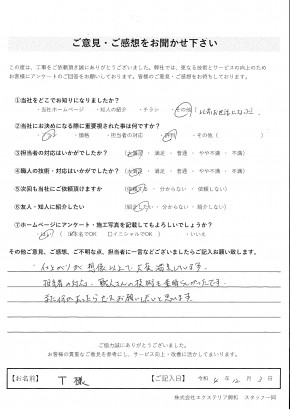 ご意見・ご感想をお聞かせ下さい
この度は、工事をご依頼頂き誠にありがとうございました。弊社では、更なる技術とサービスの向上のため
お客様にアンケートのご回答をお願いしております。皆様のご意見・ご感想をお待ちしております。
①当社をどこでお知りになりましたか?
・当社ホームページ ・知人の紹介 ・チラシ ・その他(以前お世話になった)
②当社にお決めになる際に重要視された事は何ですか?
・価格 ・担当者の対応 ・評判 ・その他( )
③担当者の対応はいかがでしたか? (大満足 ・ 満足 ・ 普通 ・ やや不満 ・ 不満)
④職人の技術・対応はいかがでしたか? (大満足 ・ 満足 ・ 普通 ・ やや不満 ・ 不満)
⑤次回も当社にご依頼頂けますか (依頼する ・ 分からない ・ 依頼しない)
⑥友人・知人に紹介したい (紹介する ・ 分からない ・ 紹介しない)
⑦ホームページにアンケート・施工写真を記載してもよろしいでしょうか?
・はい (□本名でOK □イニシャルでOK) ・いいえ
その他ご意見、ご感想、ご不明な点、担当者に一言などございましたらご記入お願い致します。
仕上がりが想像以上で大変満足しています。
担当者の対応、職人さんの技術も素晴らしかったです。
また何かあったらぜひお願いしたいと思います。
ご協力誠にありがとうございました。
お客様の貴重なご意見を参考にし、サービス向上・改善に活かしてまいります。
【お名前】 T 様 【ご記入日】 令和 4 年 12 月 3 日
株式会社エクステリア興和 スタッフ一同